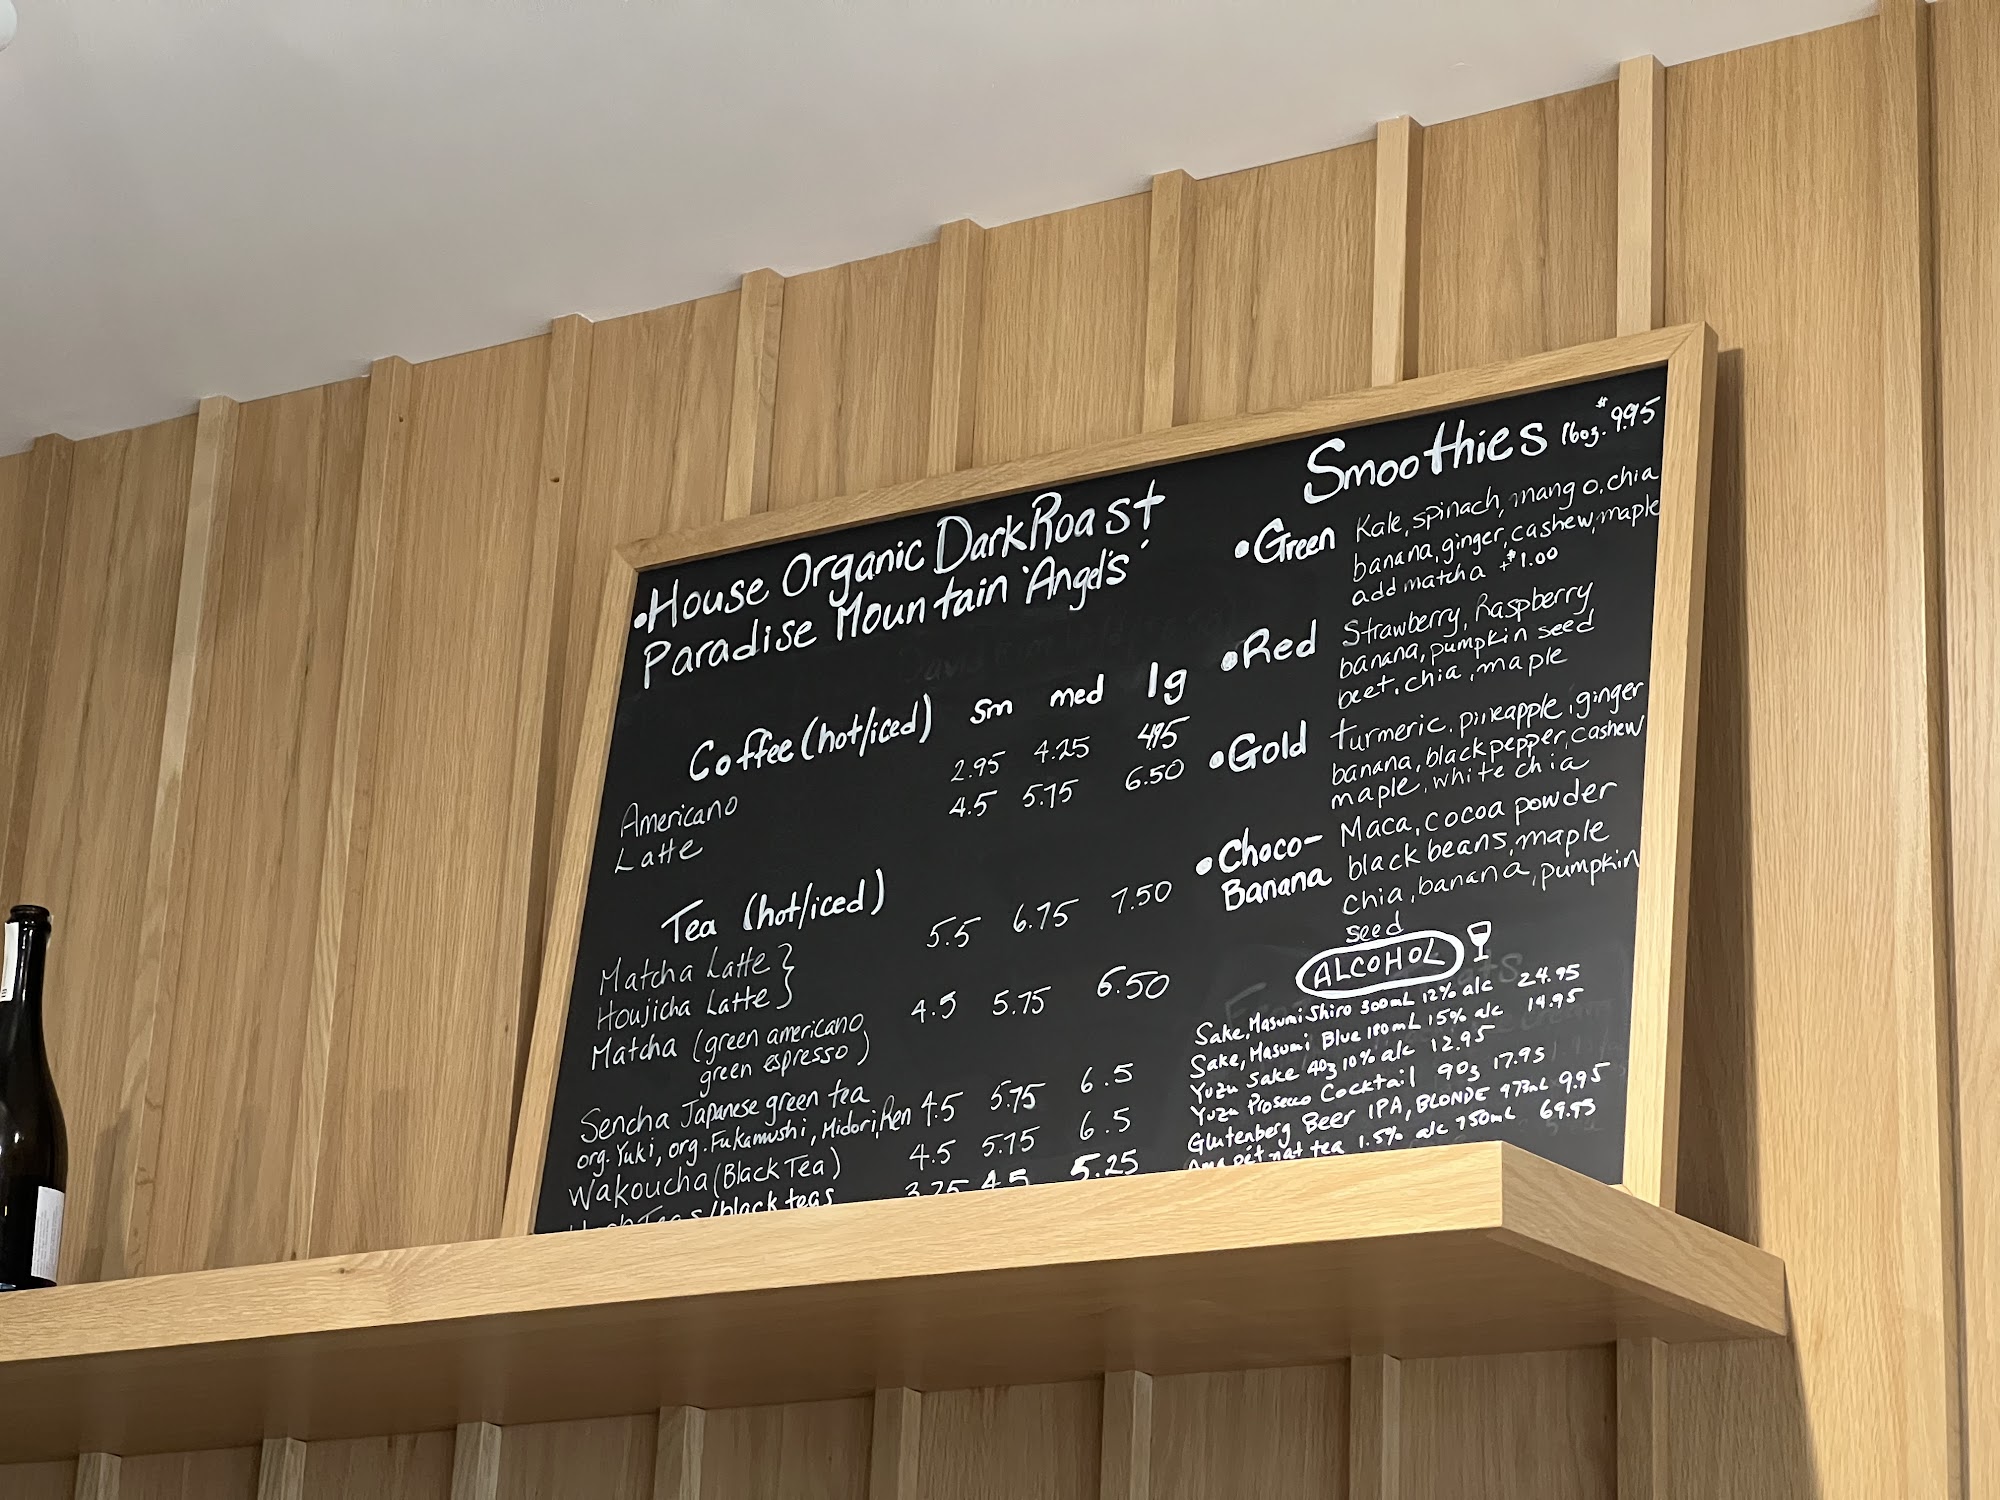 •House Organic Dark Roast
Paradise Mountain 'Angel's'
Coffee (hot/iced) sm med lg
Americano 2.95 4.25 4.95
Latte 4.5 5.75 6.50
Tea (hot/iced)
Matcha Latte } 5.5 6.75 7.50
Houjicha Latte
Matcha (green americano 4.5 5.75 6.50
green espresso)
Sencha Japanese green tea
org. Yuki, org. Fukamushi, Midori, Ren 4.5 5.75 6.5
Wakoucha (Black Tea) 4.5 5.75 6.5
/black teas 3.75 4.5 5.25
Smoothies 16oz. $9.95
•Green Kale, spinach, mango, chia
banana, ginger, cashew, maple
add matcha +$1.00
•Red Strawberry, Raspberry
banana, pumpkin seed
beet, chia, maple
•Gold turmeric, pineapple, ginger
banana, black pepper, cashew
maple, white chia
•Choco- Maca, cocoa powder
Banana black beans, maple
chia, banana, pumpkin
seed
ALCOHOL
Sake, Masumi Shiro 300mL 12% alc 24.95
Sake, Masumi Blue 180mL 15% alc 19.95
Yuzu Sake 4oz 10% alc 12.95
Yuzu Prosecco Cocktail 9oz 17.95
Glutenberg Beer IPA, BLONDE 473mL 9.95
pét nat tea 1.5% alc 750mL 69.95